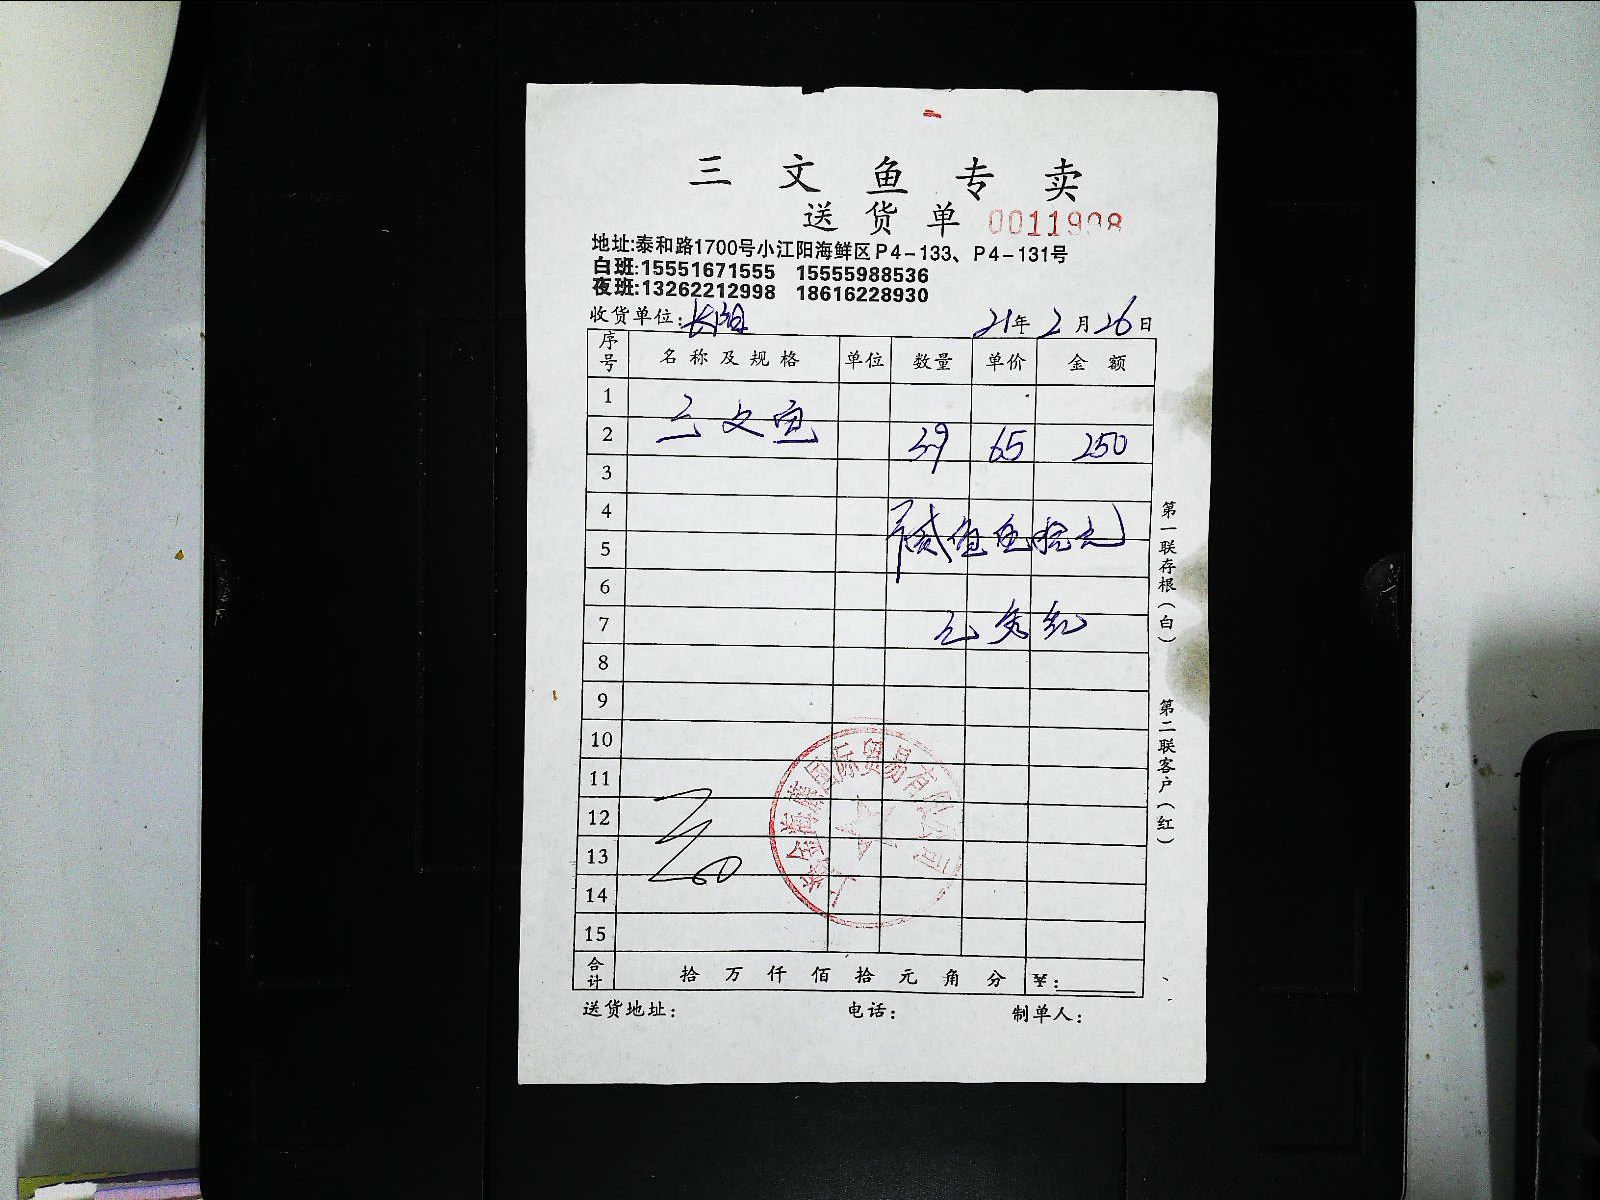 三文鱼专卖
送货单 0011998
地址:泰和路1700号小江阳海鲜区P4-133、P4-131号
白班:15551671555 15555988536
夜班:13262212998 18616228930
收货单位:长阳 21年2月26日
序号 名称及规格 单位 数量 单价 金额
1
2 三文鱼 39 65 250
3
4
5 贰佰伍拾元
6
7
8
9
10
11
12
13
14
15
合计 拾万仟佰拾元角分 ¥:
送货地址: 电话: 制单人:
第一联存根(白)
第二联客户(红)
国际贸易有限公司